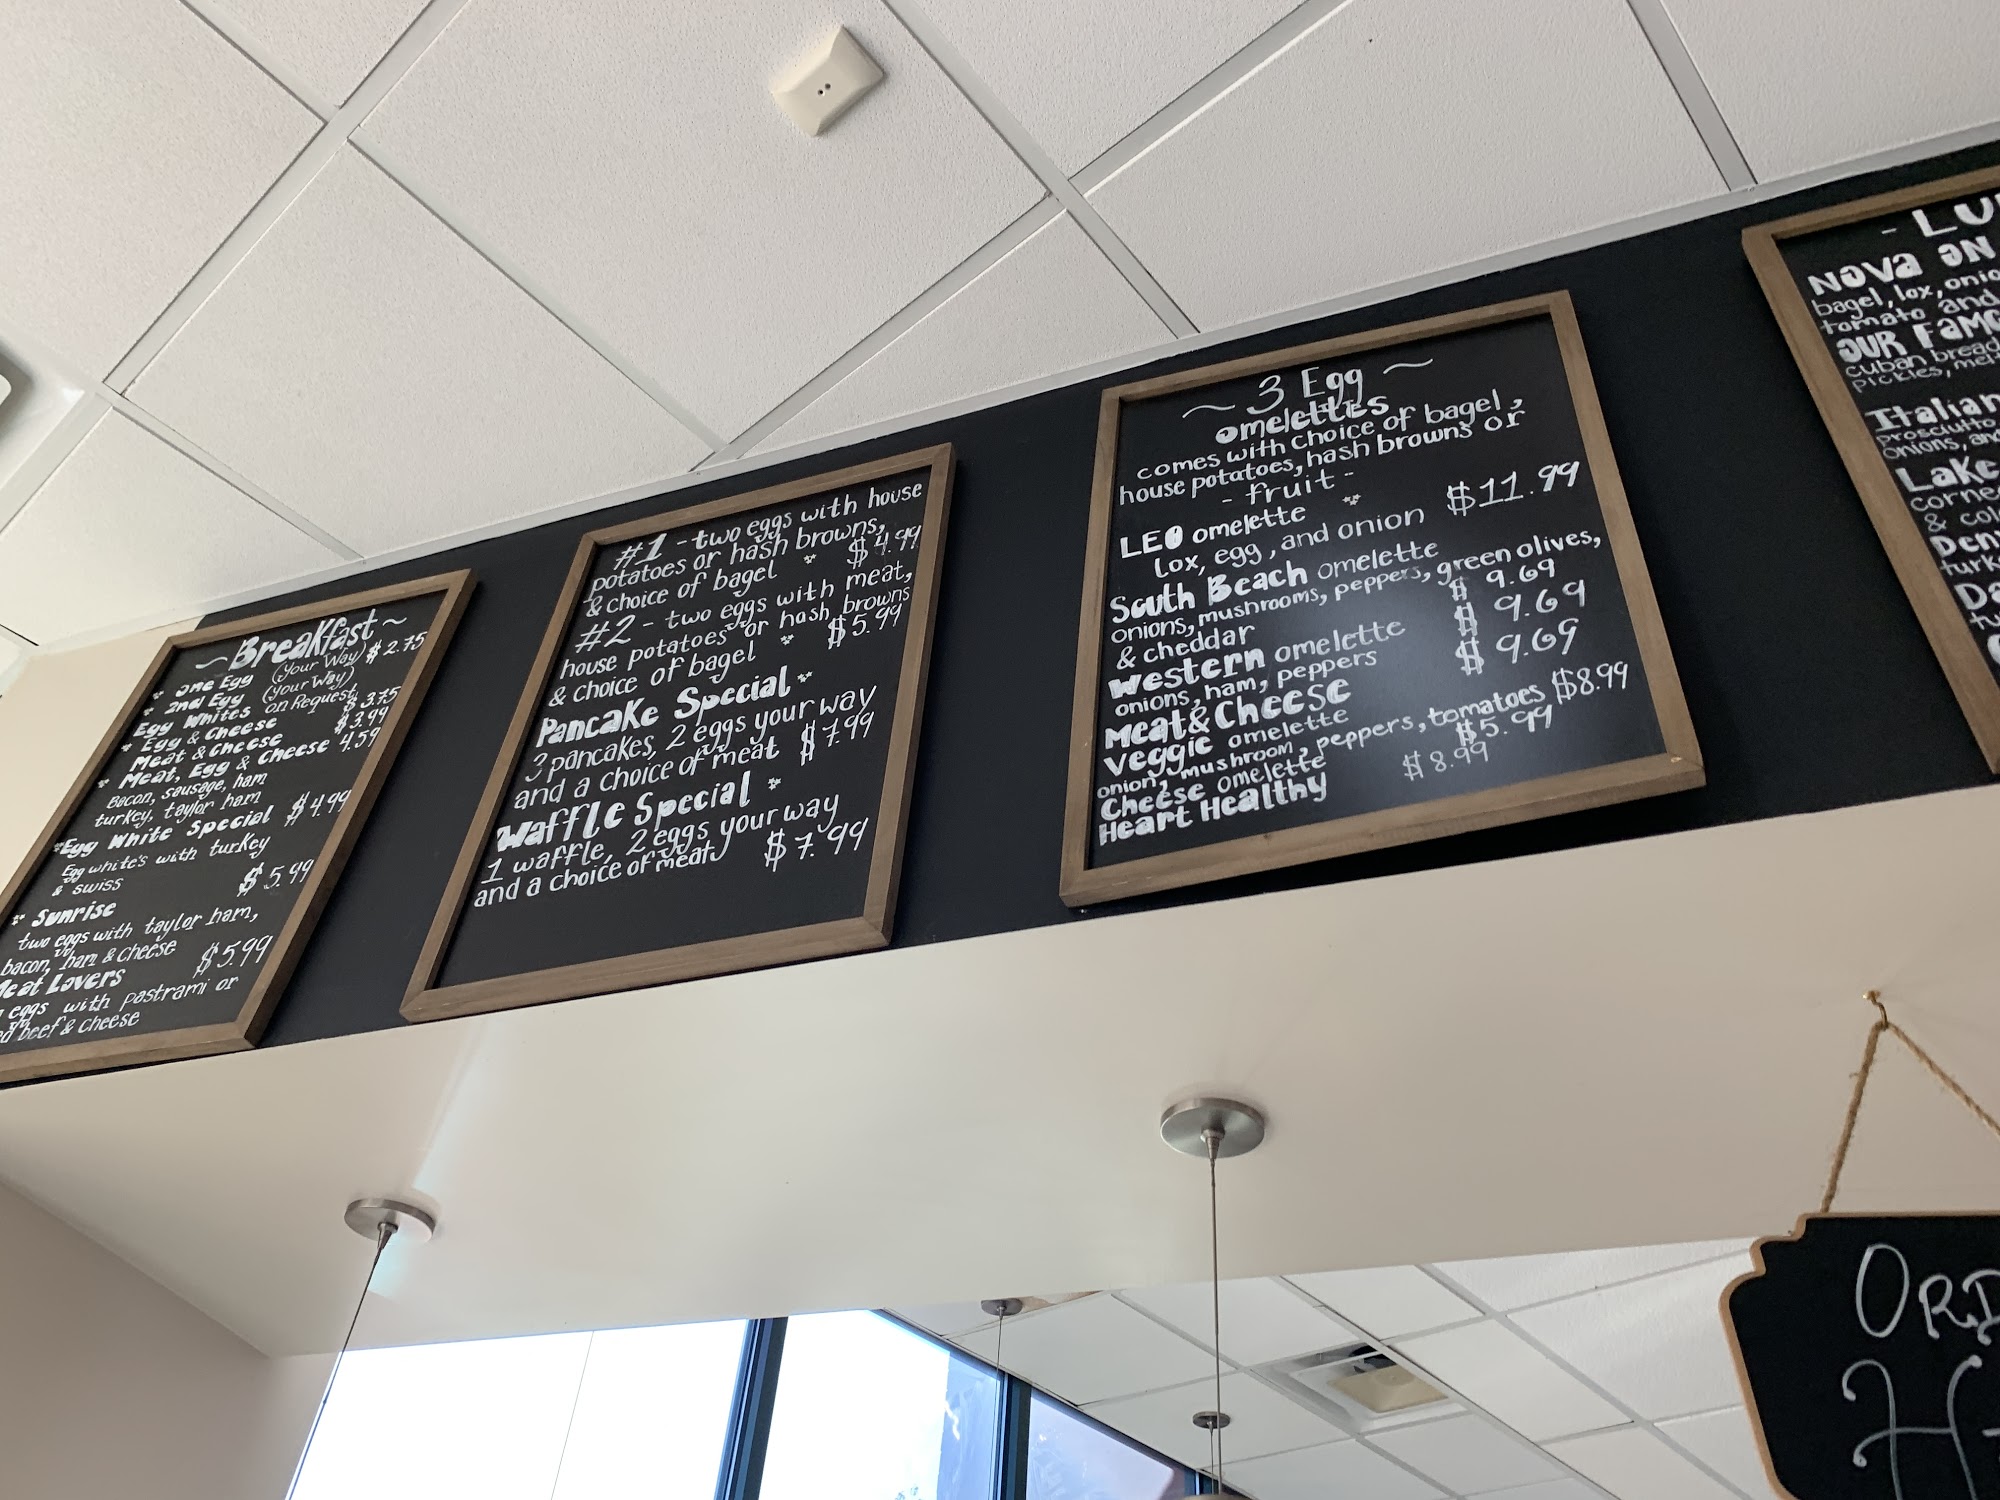 ~ Breakfast ~
* one Egg (your Way) $2.75
* 2nd Egg (your Way)
Egg Whites on Request
* Egg & Cheese $3.75
Meat & Cheese $3.99
* Meat, Egg & Cheese 4.59
Bacon, sausage, ham
turkey, taylor ham
*Egg White Special $4.99
Egg white's with turkey
& swiss $5.99
* Sunrise
two eggs with taylor ham,
bacon, ham & cheese $5.99
Meat Lovers
eggs with pastrami or
beef & cheese
#1 - two eggs with house
potatoes or hash browns,
& choice of bagel * $4.99
#2 - two eggs with meat,
house potatoes or hash browns
& choice of bagel * $5.99
Pancake Special *
3 pancakes, 2 eggs your way
and a choice of meat $7.99
Waffle Special *
1 waffle, 2 eggs your way
and a choice of meat $7.99
~ 3 Egg ~
omelettes
comes with choice of bagel,
house potatoes, hash browns or
- fruit -
LEO omelette $11.99
lox, egg, and onion
South Beach omelette
onions, mushrooms, peppers, green olives,
& cheddar $9.69
Western omelette $9.69
onions, ham, peppers
Meat&Cheese $9.69
Veggie omelette
onion, mushroom, peppers, tomatoes $8.99
Cheese omelette $5.99
Heart Healthy $8.99
- LU
Nova on
bagel, lox, onio
tomato and
our Famo
cuban bread
pickles, me
Italian
prosciutto
onions, and
Lake
corne
& col
Den
turk
Da
tu
Ord
H